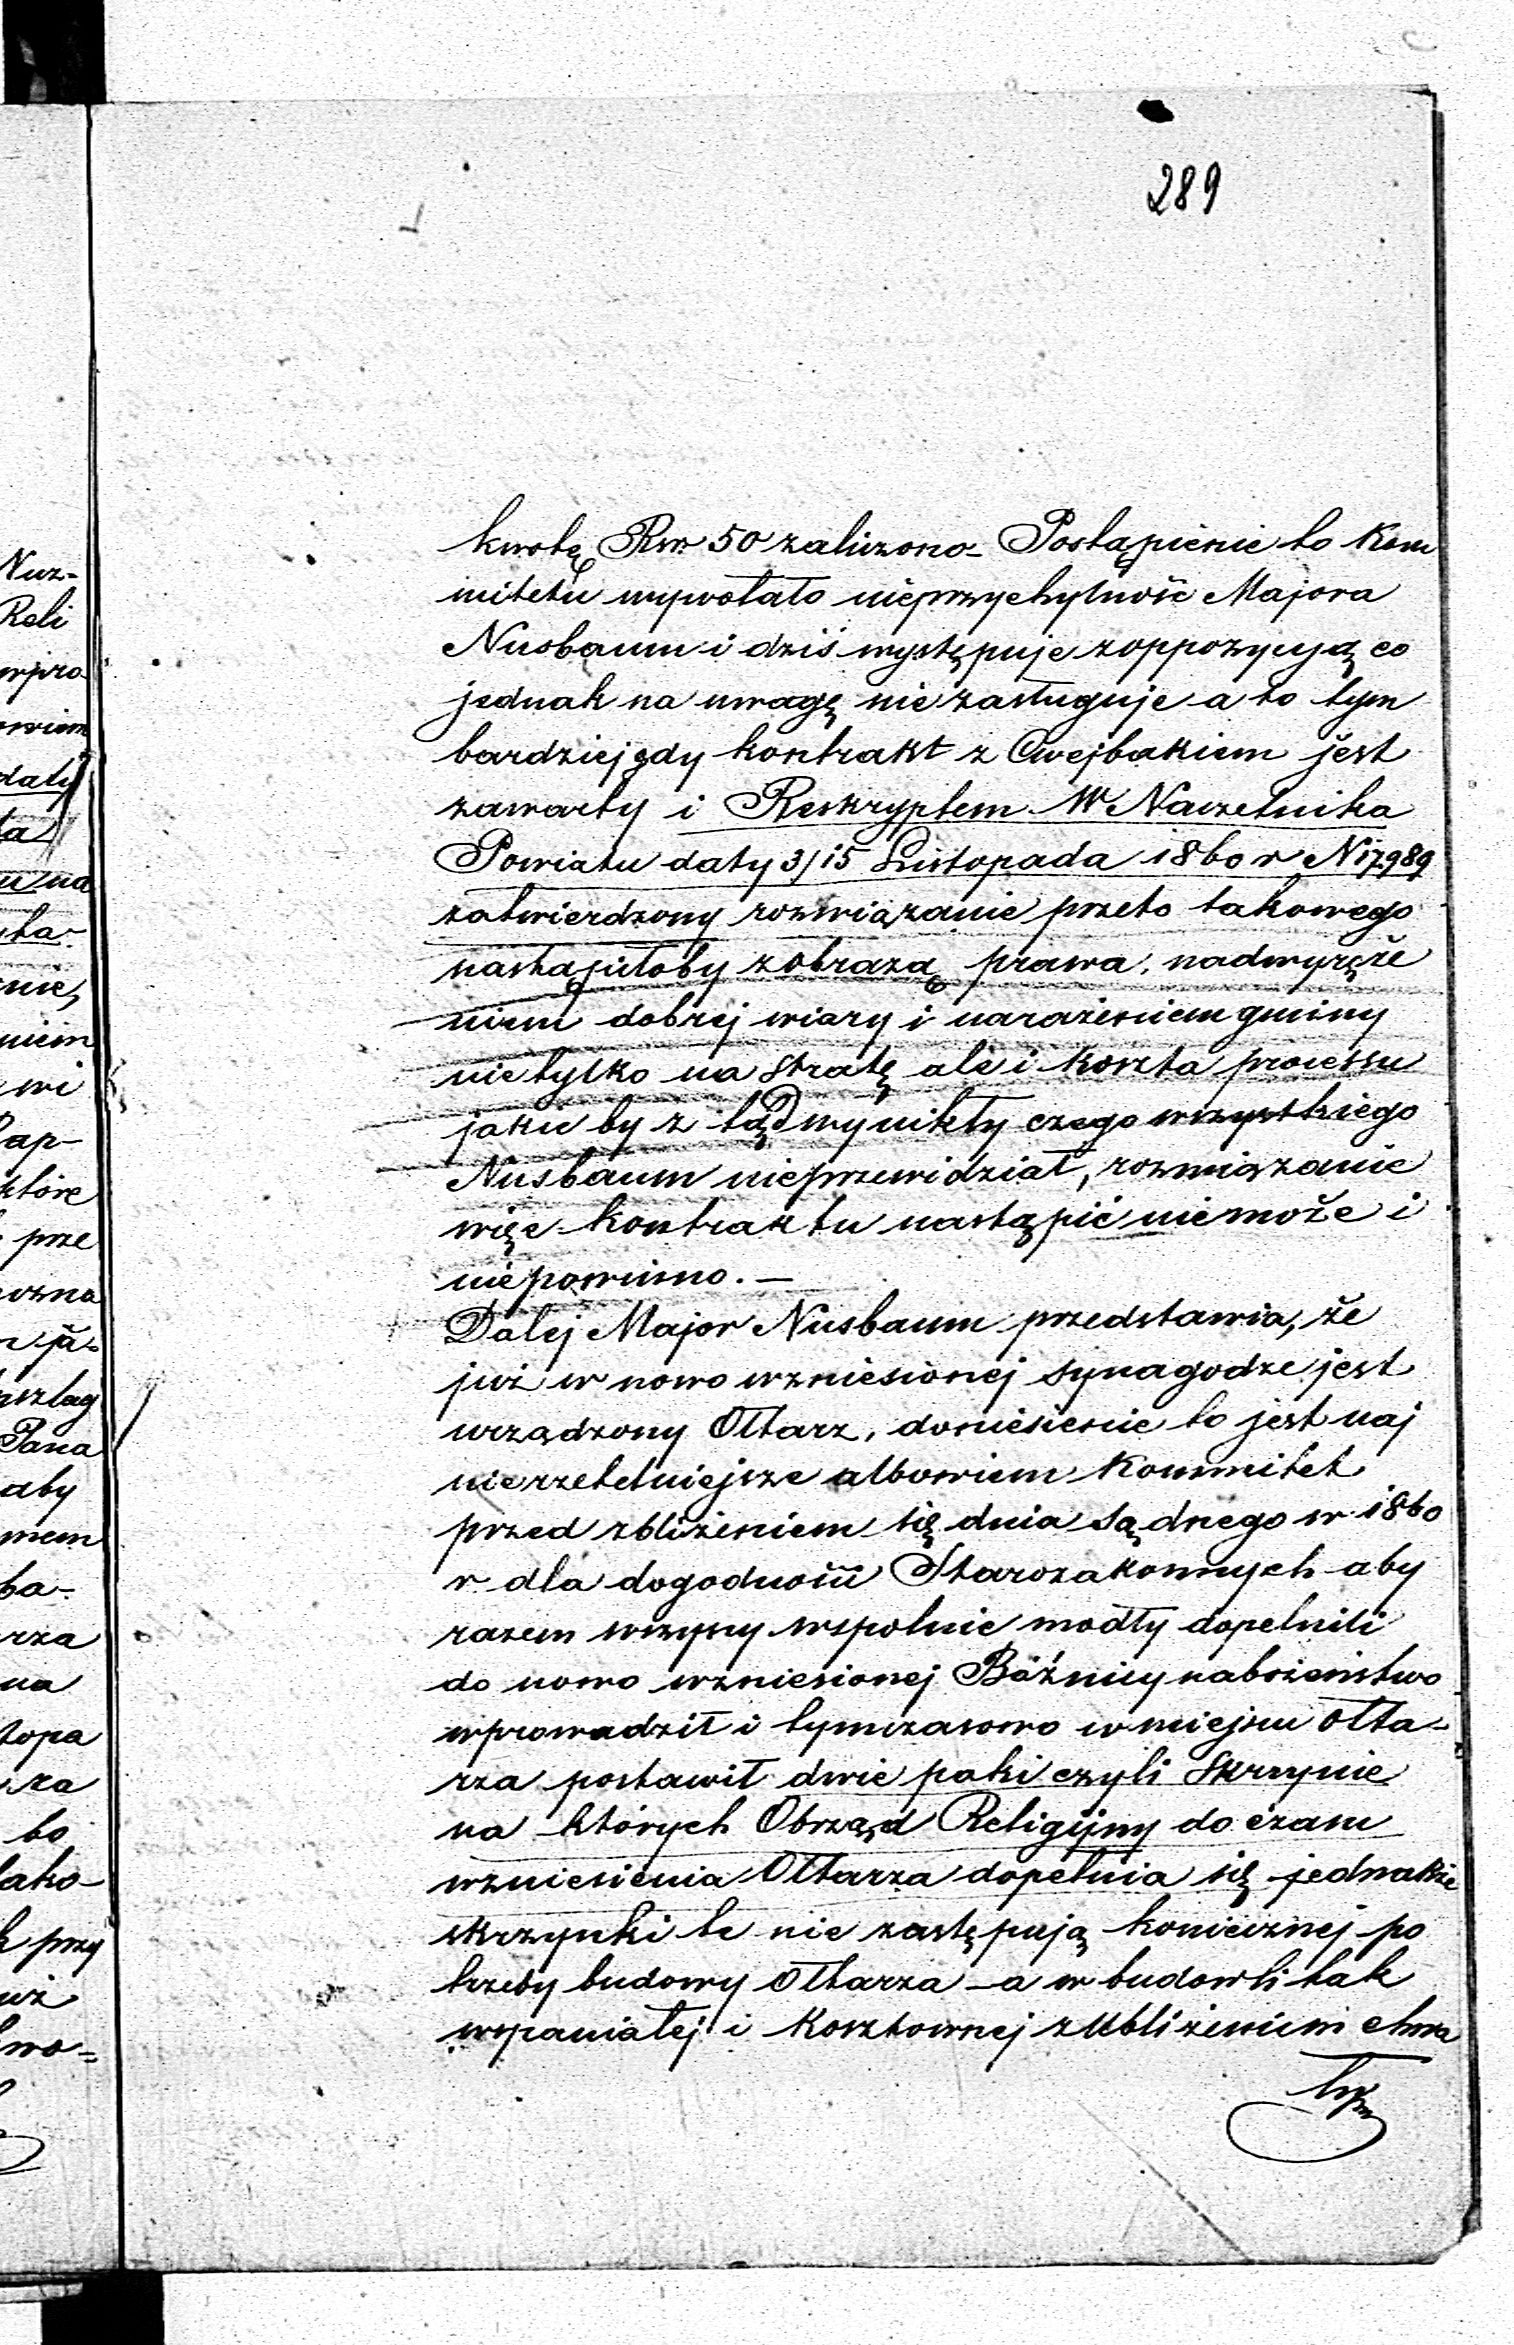 289
kwotę Rsr. 50 zaliczono – Postąpienie to Kom
mitetu wywołało nieprzychylność Majora
Nusbaum i dziś występuje z oppozycyą co
jednak na uwagę nie zasługuje a to tym
bardziej gdy kontrakt z Cwejbakiem jest
zawarty i Reskryptem W Naczelnika
Powiatu daty 3/15 Listopada 1860 r N 17989
zatwierdzony rozwiązanie przeto takowego
nastąpiłoby z obrazą prawa, nadwyręże
niem dobrej wiary i narażeniem gminy
nie tylko na stratę ale i koszta processu
jakie by z tąd wynikły czego wszystkiego
Nusbaum nieprzewidział, rozwiązanie
więc kontraktu nastąpić nie może i
niepowinno. –
Dalej Major Nusbaum przedstawia, że
już w nowo wzniesionej synagodze jest
urządzony Ołtarz, doniesienie to jest naj
nierzetelniejsze albowiem Kommitet
przed zbliżeniem się dnia sądnego w 1860
r dla dogodności Starozakonnych aby
razem wszyscy wspolnie modły dopełnili
do nowo wzniesionej Bóżnicy nabożeństwo
wprowadził i tymczasowo w miejscu ołta-
rza postawił dwie paki czyli Skrzynie
na których Obrząd Religijny do czasu
wzniesienia Ołtarza dopełnia się jednakże
skrzynki te nie zastępują koniecznej po
trzeby budowy ołtarza – a w budowli tak
wspaniałej i kosztownej z ubliżeniem chwa
Nuz-
Reli
wpro
owiem
daty
ta
u na
nie,
niem
wi
Rap-
które
prze
ozna
Pana
aby
mem
ba-
rza
na
topa
za
to
tako-
k przy
uż
two=